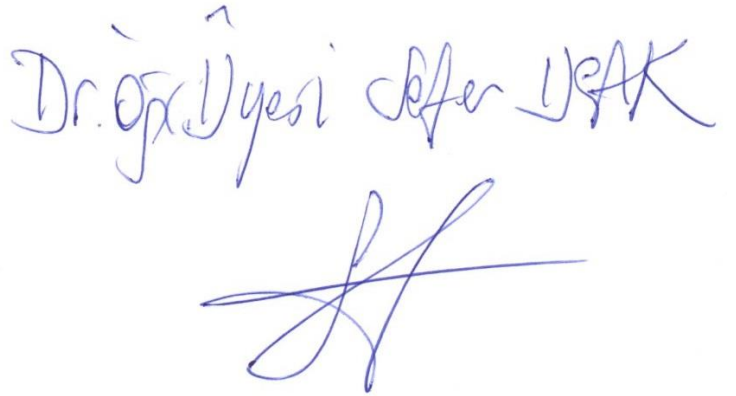 Dr. Öğr. Üyesi Sefer UŞAK